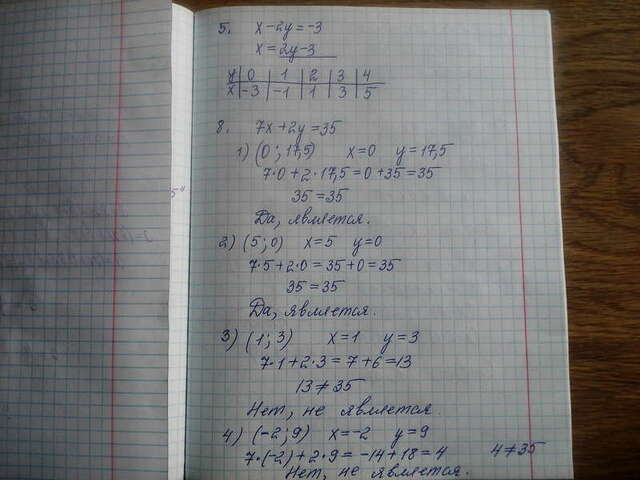 5. x-2y=-3
x=2y-3
y 0 1 2 3 4
x -3 -1 1 3 5
8. 7x+2y=35
1) (0; 17,5) x=0 y=17,5
7·0+2·17,5=0+35=35
35=35
Да, является.
2) (5; 0) x=5 y=0
7·5+2·0=35+0=35
35=35
Да, является.
3) (1; 3) x=1 y=3
7·1+2·3=7+6=13
13≠35
Нет, не является
4) (-2; 9) x=-2 y=9
7·(-2)+2·9=-14+18=4 4≠35
Нет, не является.